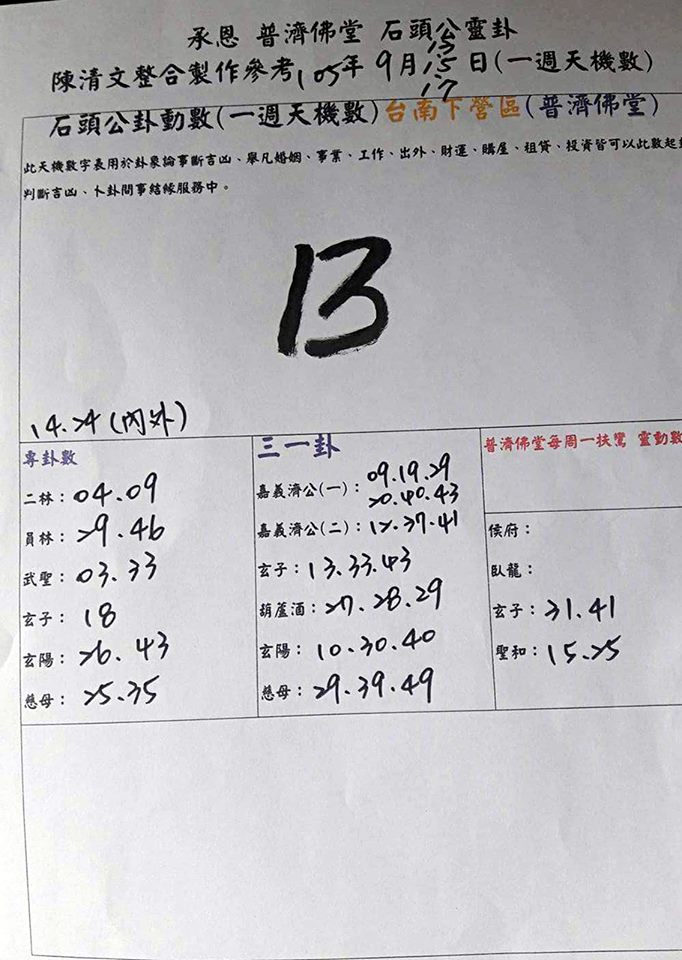 承恩 普濟佛堂 石頭公靈卦
13
陳清文整合製作參考105年 9月15日(一週天機數)
17
石頭公卦動數(一週天機數)台南下營區(普濟佛堂)
此天機數字表用於卦象論事斷吉凶、舉凡婚姻、事業、工作、出外、財運、購屋、租貸、投資皆可以此數起卦
判斷吉凶、卜卦問事結緣服務中。
13
14.24(內外)
專卦數
二林：04.09
員林：29.46
武聖：03.33
玄子：18
玄陽：26.43
慈母：25.35
三一卦
嘉義濟公(一)：09.19.29
20.40.43
嘉義濟公(二)：12.37.41
玄子：13.33.43
葫蘆酒：27.28.29
玄陽：10.30.40
慈母：29.39.49
普濟佛堂每周一扶鸞 靈動數
侯府：
臥龍：
玄子：31.41
聖和：15.25